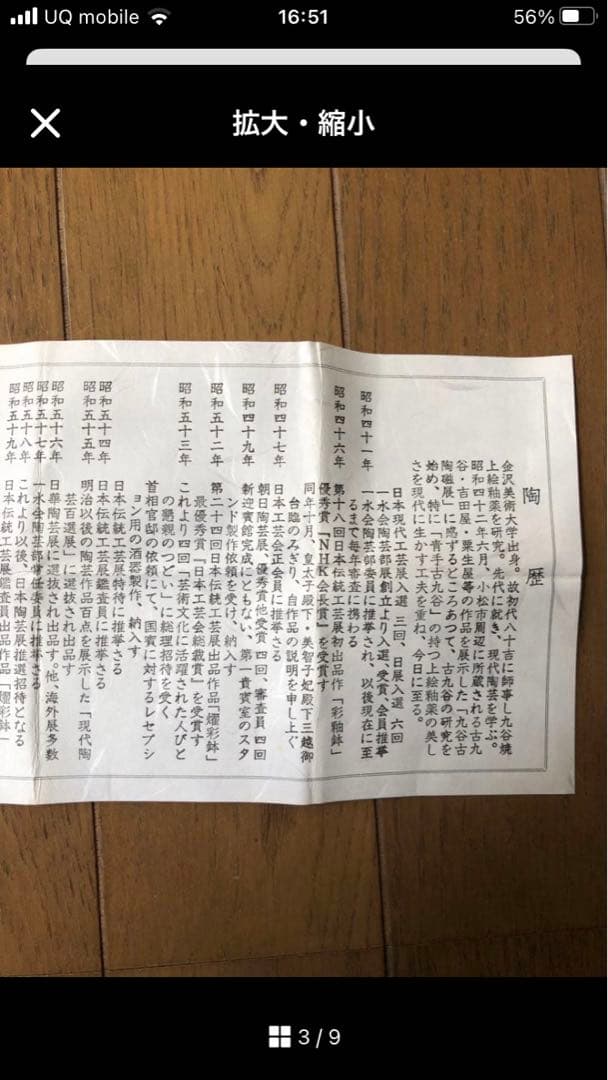 UQ mobile
16:51
56%
拡大・縮小
陶歴
金沢美術大学出身。故初代八十吉に師事し九谷焼
上絵釉薬を研究。先代に就き、現代陶芸を学ぶ。
昭和四十二年六月、小松市周辺に所蔵される古九
谷・吉田屋・粟生屋等の作品を展示した「九谷古
陶磁展」に感ずるところあつて、古九谷の研究を
始め、特に「青手古九谷」の持つ上絵釉薬の美し
さを現代に生かす工夫を重ね、今日に至る。
日本現代工芸展入選 三回、日展入選 六回
昭和四十一年 一水会陶芸部展創立より入選、受賞、会員推挙
一水会陶芸部委員に推挙され、以後現在に至
るまで毎年審査に携わる
昭和四十六年 第十八回日本伝統工芸展初出品作「彩釉鉢」
優秀賞「NHK会長賞」を受賞す
同年十月、皇太子殿下・美智子妃殿下三越御
台臨のみぎり、自作品の説明を申し上ぐ
昭和四十七年 日本工芸会正会員に推挙さる
朝日陶芸展、優秀賞他受賞 四回、審査員 四回
昭和四十九年 新迎賓館完成にともない、第一貴賓室のスタ
ンド製作依頼を受け、納入す
昭和五十二年 第二十四回日本伝統工芸展出品作品「燿彩鉢」
最優秀賞「日本工芸会総裁賞」を受賞す
昭和五十三年 これより四回「芸術文化に活躍された人びと
の懇親のつどい」に総理招待を受く
首相官邸の依頼にて、国賓に対するレセプシ
ョン用の酒器製作、納入す
日本伝統工芸展特待に推挙さる
昭和五十四年 日本伝統工芸展鑑査員に推挙さる
昭和五十五年 明治以後の陶芸作品百点を展示した「現代陶
芸百選展」に選抜され出品す
昭和五十六年 日華陶芸展に選抜され出品す。他、海外展多数
昭和五十七年 一水会陶芸部常任委員に推挙さる
昭和五十八年 これより以後、日本陶芸展推選招待となる
昭和五十九年 日本伝統工芸展鑑査員出品作品「燿彩鉢」
3 / 9